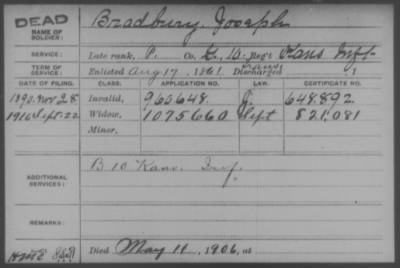 DEAD
NAME OF SOLDIER: Bradbury, Joseph
SERVICE: Late rank, P. Co. Reg't Kans Inf.
TERM OF SERVICE: Enlisted Aug 17, 1861 Discharged , 1
DATE OF FILING. CLASS. APPLICATION NO. LAW. CERTIFICATE NO.
1890. Nov 28 Invalid, 965648. 648.892
1916 Sept. 22 Widow, 1075660 Sept 821,081
Minor,
ADDITIONAL SERVICES: B 10 Kans. Inf.
REMARKS:
Died May 11, 1906, at